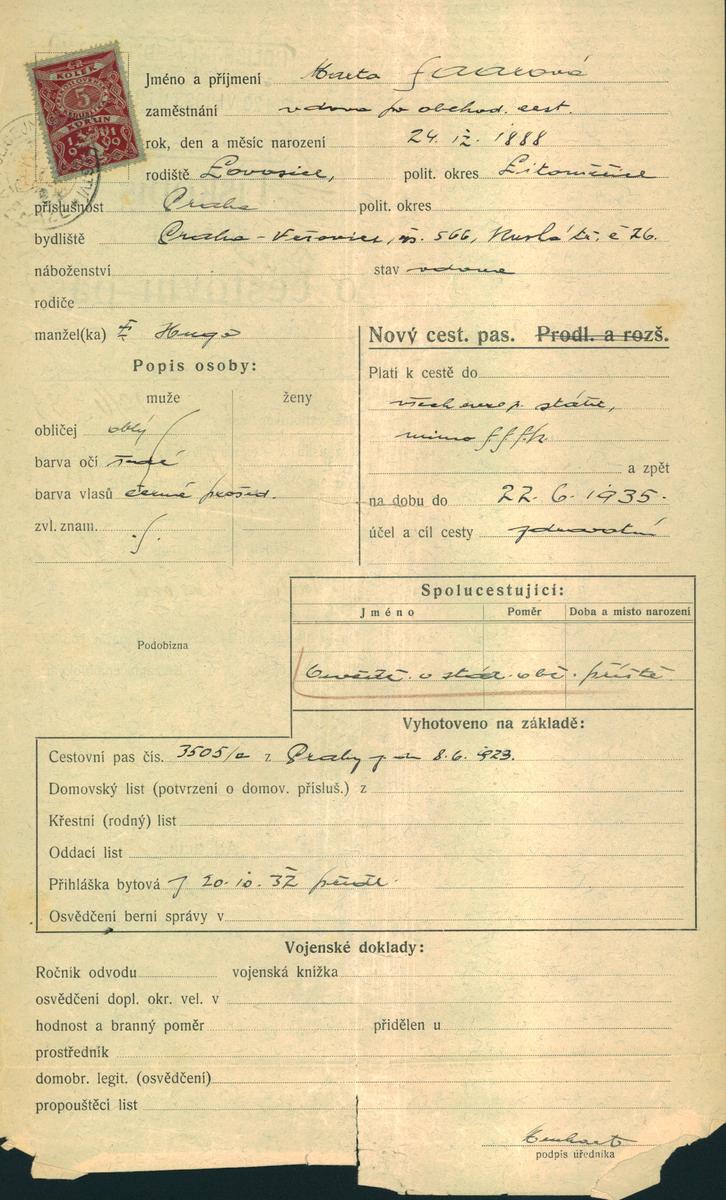 Kolek
5
Korun
1919
Jméno a příjmení Marta
zaměstnání vdova po obchod. cest.
rok, den a měsíc narození 24. IX. 1888
rodiště Lovosice, polit. okres Litoměřice
příslušnost Praha polit. okres
bydliště Praha - Vršovice, čp. 566, Ruská tř. č 26.
náboženství stav vdova
rodiče
manžel(ka) Hugo
Nový cest. pas. Prodl. a rozš.
Popis osoby:
muže ženy
obličej oblý
barva očí šedé
barva vlasů černé prošed.
zvl. znam.
Platí k cestě do
všech evrop. států,
mimo
a zpět
na dobu do 22. 6. 1935.
účel a cíl cesty zdravotní
Spolucestující:
Jméno Poměr Doba a místo narození
Osvědč. o stát. obč. příště
Podobizna
Vyhotoveno na základě:
Cestovní pas čís. 3505/ z Prahy 8. 6. 1923.
Domovský list (potvrzení o domov. přísluš.) z
Křestní (rodný) list
Oddací list
Přihláška bytová z 20. 10. 32 předl.
Osvědčení berní správy v
Vojenské doklady:
Ročník odvodu vojenská knížka
osvědčení dopl. okr. vel. v
hodnost a branný poměr přidělen u
prostředník
domobr. legit. (osvědčení)
propouštěcí list
podpis úředníka